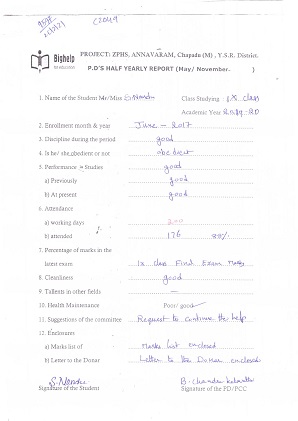 Bighelp
for education
PROJECT: ZPHS, ANNAVARAM, Chapadu (M), Y.S.R. District.
P.D'S HALF YEARLY REPORT (May/ November. )
1. Name of the Student Mr/Miss S. Nandu Class Studying : IX class
Academic Year 2019-20
2. Enrollment month & year June - 2017
3. Discipline during the period good
4. Is he/ she, obedient or not obedient
5. Performance in Studies good
a) Previously good
b) At present good
6. Attendance
a) working days 200
b) attended 176
7. Percentage of marks in the
latest exam
8. Cleanliness good
9. Tallents in other fields —
10. Health Maintenance Poor/ good
11. Suggestions of the committee Request to continue the help
12. Enclosures
a) Marks list of Marks list enclosed
b) Letter to the Donar Letter to the Donar enclosed
S. Nandu
Signature of the Student Signature of the PD/PCC